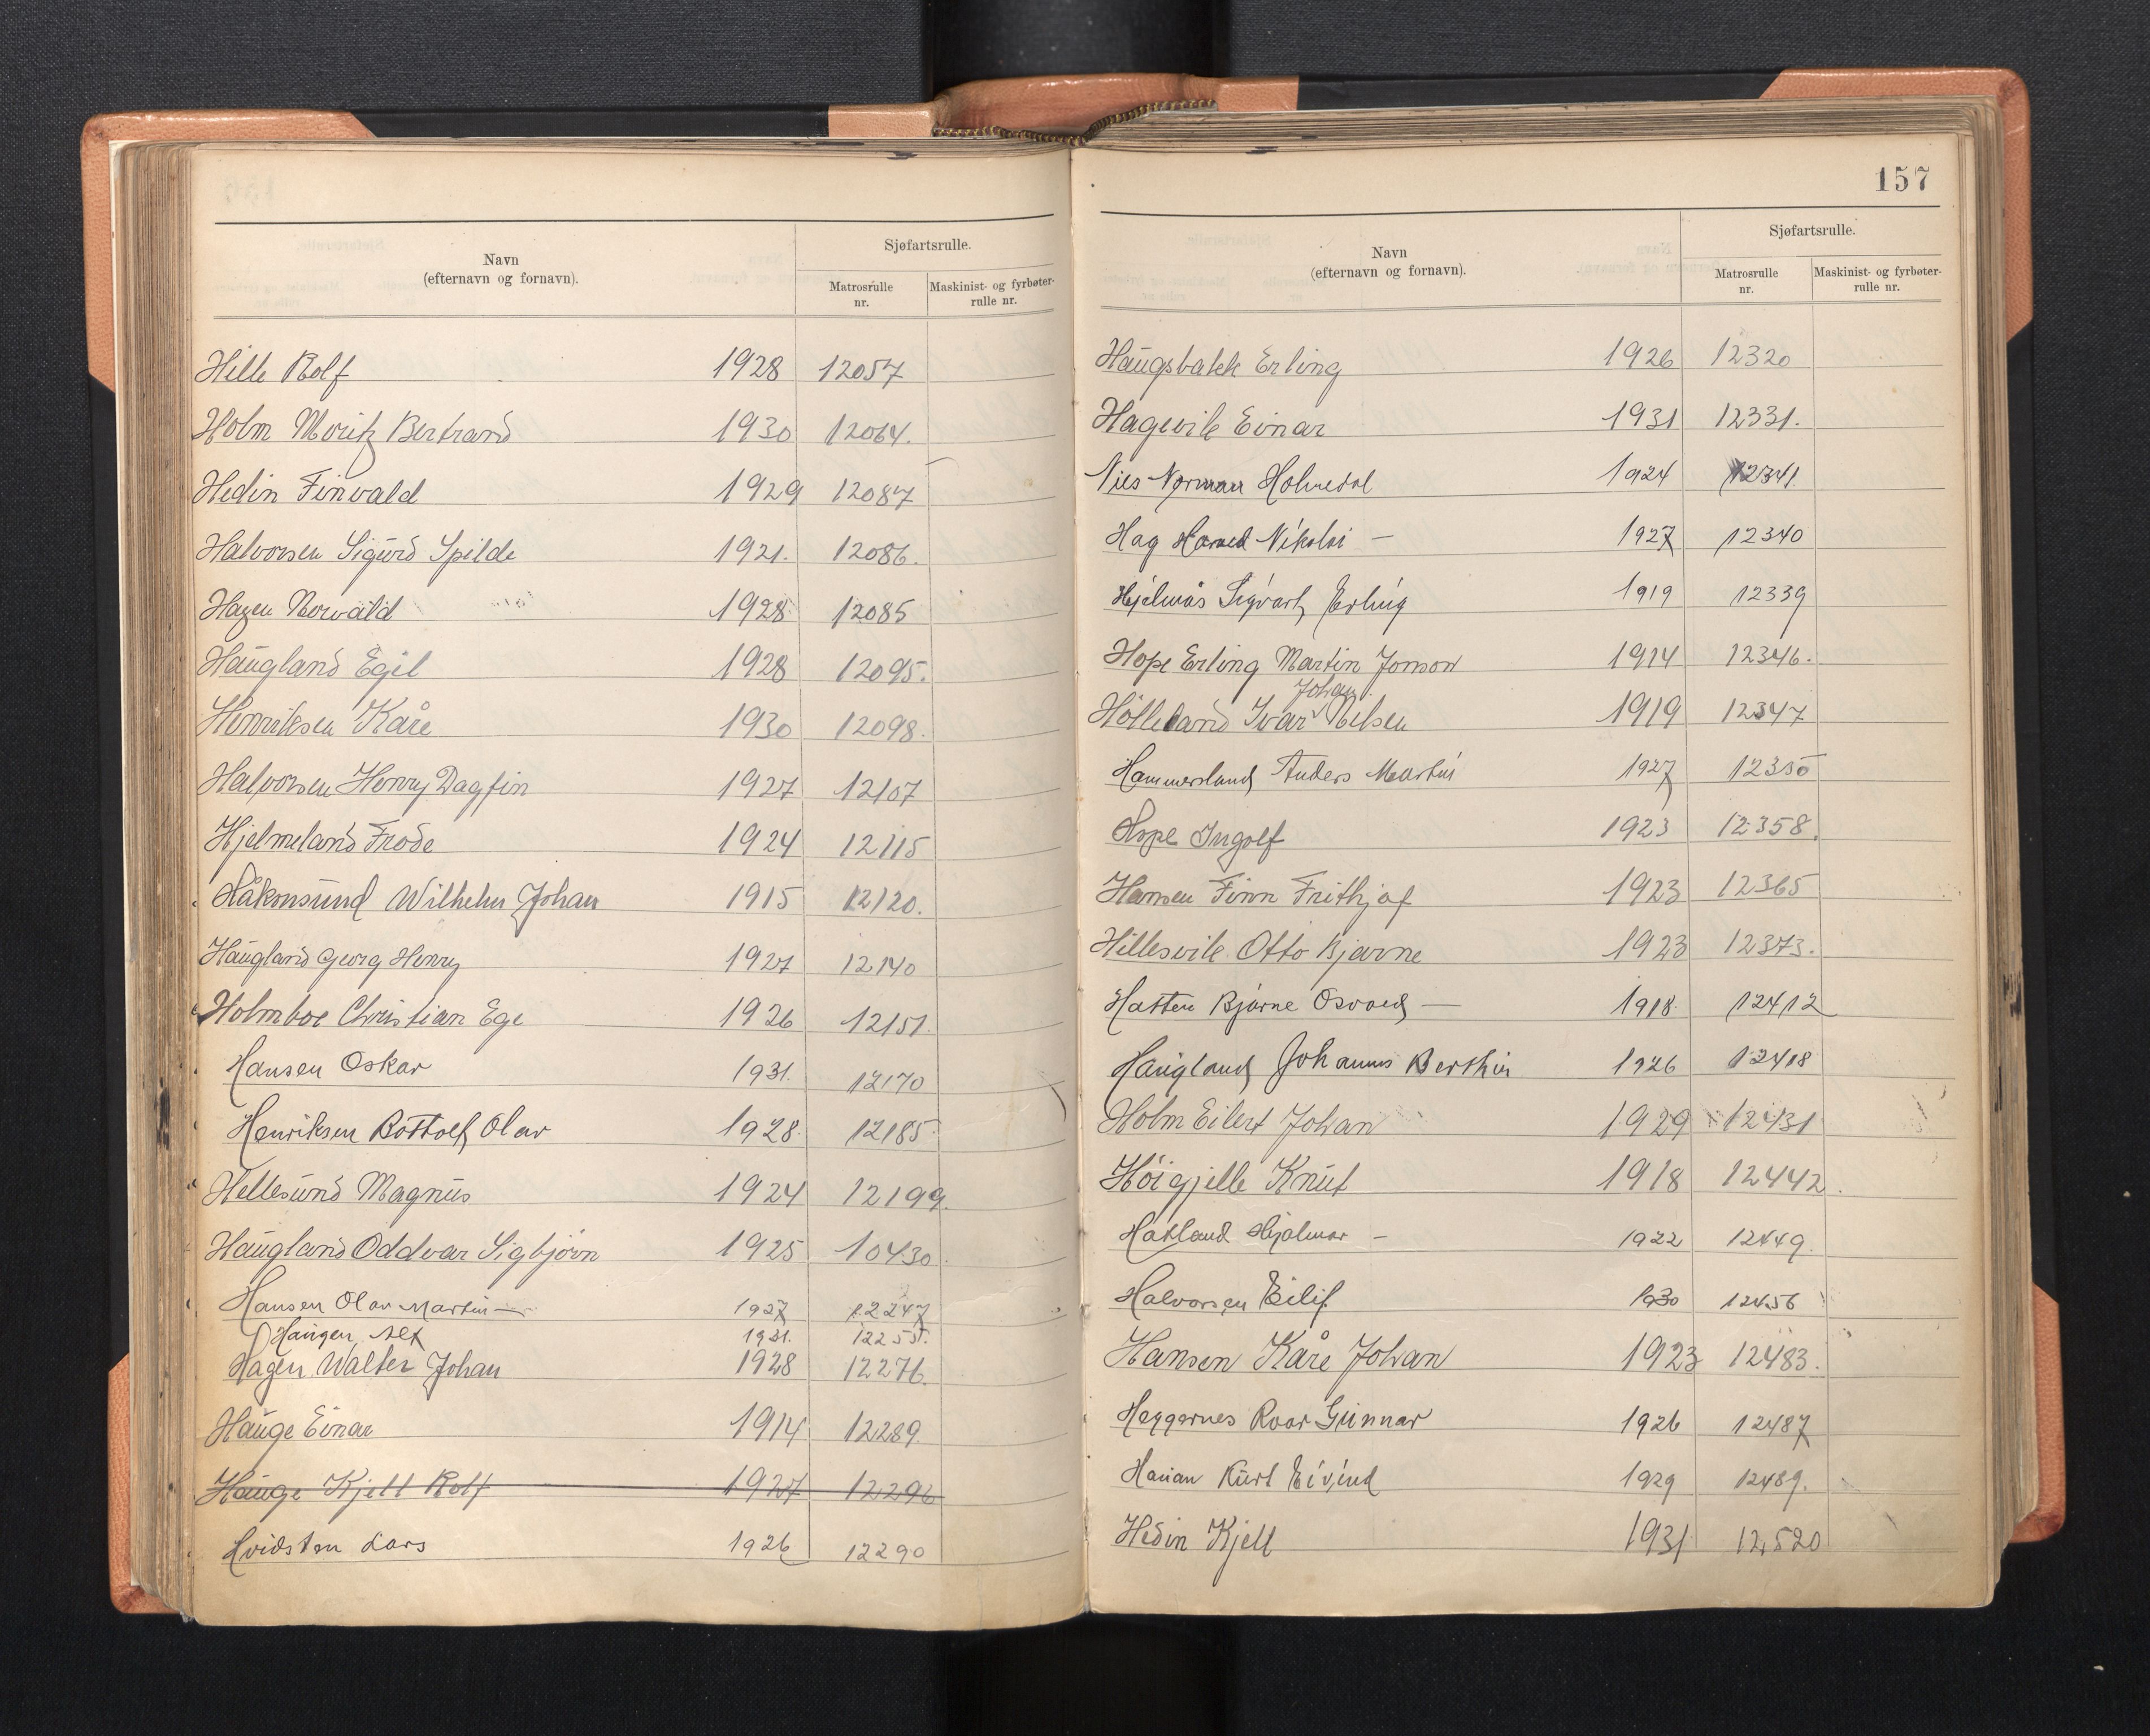 Navn
(efternavn og fornavn).
Sjøfartsrulle.
Matrosrulle
nr.
Maskinist- og fyrbøter-
rulle nr.
Hille Rolf 1928 12057
Holm Moritz Bertrand 1930 12064.
Hedin Finvald 1929 12087
Halvorsen Sigurd Spilde 1921. 12086.
Hagen Norvald 1928 12085
Haugland Egil 1928 12095.
Henriksen Kåre 1930 12098.
Halvorsen Henry Dagfin 1927 12107
Hjelmeland Frode 1924 12115
Håkonsund Wilhelm Johan 1915 12120.
Haugland Georg Henry 1927 12140
Holmboe Christian Ege 1926 12151.
Hansen Oskar 1931. 12170
Henriksen Bottolf Olav 1928. 12185
Hellesund Magnus 1924 12199.
Haugland Oddvar Sigbjørn 1925 10430
Hansen Olav Martin — 1927 12247
Haugen Alf 1931. 12251.
Hagen Walter Johan 1928 12276.
Hauge Einar 1914 12289.
Hauge Kjell Rolf 1927 12296
Hvidsten Lars 1926 12290
157
Navn
(efternavn og fornavn).
Sjøfartsrulle.
Matrosrulle
nr.
Maskinist- og fyrbøter-
rulle nr.
Haugsbakk Erling 1926 12320
Hagevik Einar 1931 12331.
Norman Holmedal 1924 12341.
Hag Nikolai — 1927 12340
Hjelmås Sigvart Erling 1919 12339
Hope Erling Martin Jonson 1914 12346.
Johan
Hølleland Ivar Nilsen 1919 12347
Hammersland Anders Martin 1927 12350
Hope Ingolf 1923 12358.
Hansen Finn Frithjof 1923 12365
Hillesvik Otto Bjarne 1923 12373.
Hatten Bjarne Osvald — 1918. 12412
Haugland Johannes Berthin 1926 12418
Holm Eilert Johan 1929 12431
Høigjelle Knut 1918 12442.
Hatland Hjalmar – 1922 12449.
Halvorsen Eilif. 1930 12456
Hansen Kåre Johan 1923 12483.
Heggernes Roar Gunnar 1926 12487
Kurt Eivind 1929 12489.
Hedin Kjell 1931 12520